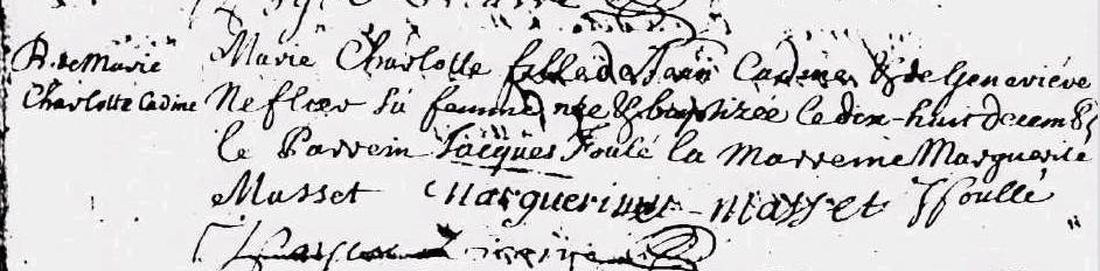 B. de Marie
Charlotte Cadine
Marie Charlotte fille de Jean Cadine & de Geneviéve
Neflier sa femme née & baptizée le dix-huit decemb
le Parrein Jacques Foulé la Marreine Marguerite
Masset Margueritte Masset J foullé